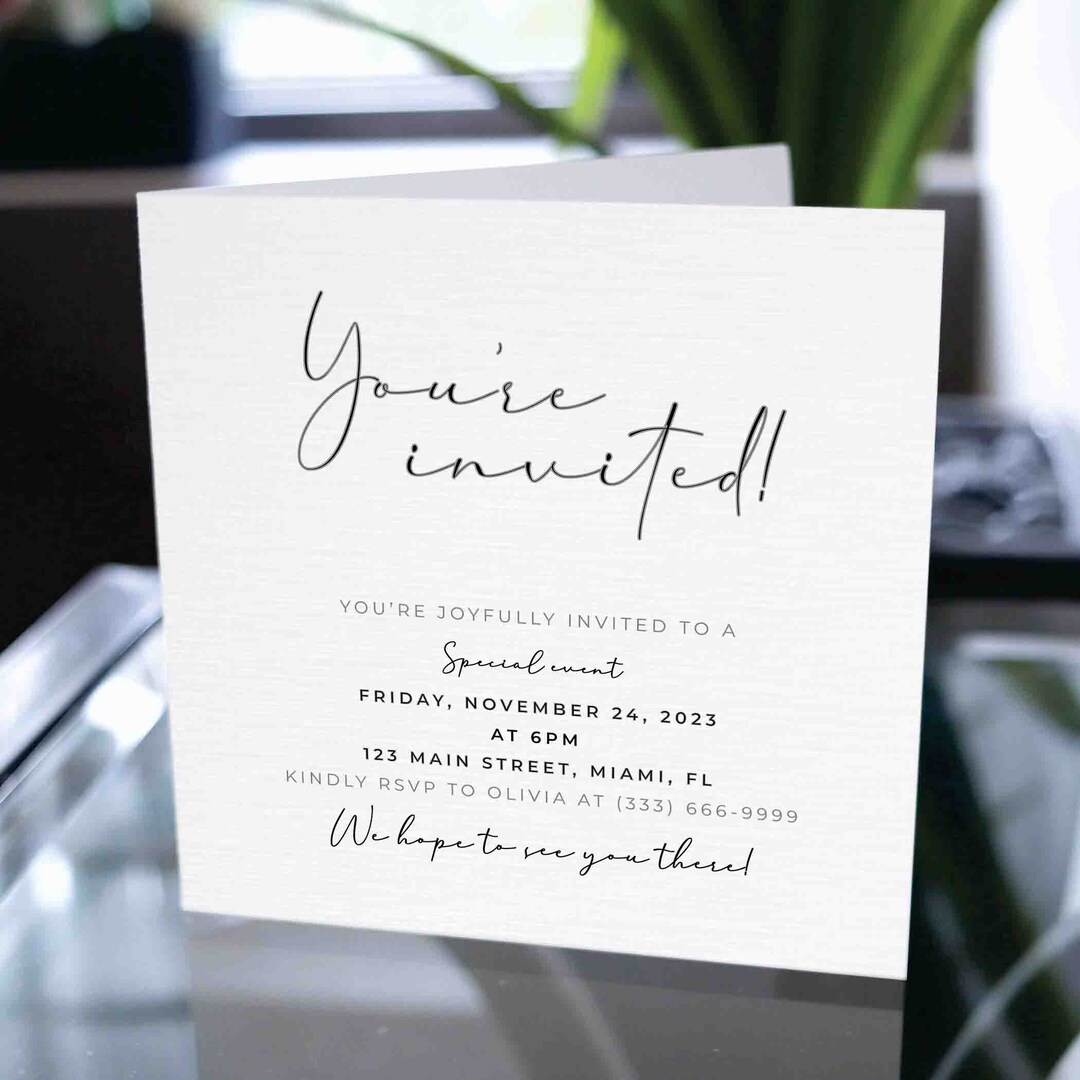 You're
invited!
YOU'RE JOYFULLY INVITED TO A
Special event
FRIDAY, NOVEMBER 24, 2023
AT 6PM
123 MAIN STREET, MIAMI, FL
KINDLY RSVP TO OLIVIA AT (333) 666-9999
We hope to see you there!